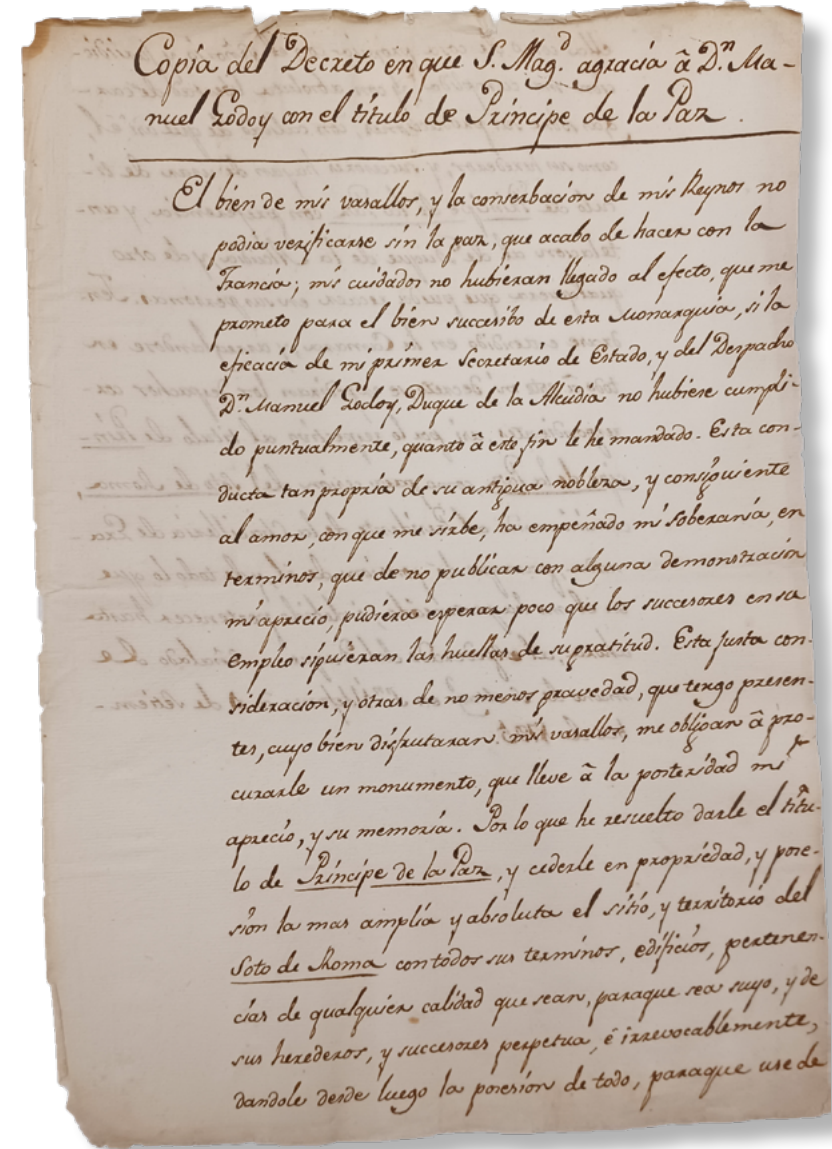 Copia del Decreto en que S. Mag.d agracia â D.n Ma-
nuel Godoy con el título de Príncipe de la Paz.
El bien de mis vasallos, y la conserbación de mis Reynos no
podia verificarse sin la paz, que acabo de hacer con la
Francia; mis cuidados no hubieran llegado al efecto, que me
prometo para el bien succesibo de esta Monarquia, si la
eficacia de mi primer Secretario de Estado, y del Despacho
D.n Manuel Godoy, Duque de la Alcudia no hubiese cumpli-
do puntualmente, quanto â este fin le he mandado. Esta con-
ducta tan propria de su antigua nobleza, y consiguiente
al amor, con que me sirbe, ha empeñado mi soberanía, en
terminos, que de no publicar con alguna demonstración
mi aprecio, pudiera esperar poco que los succesores en su
empleo siguieran las huellas de su gratitud. Esta justa con-
sideracion, y otras de no menos gravedad, que tengo presen-
tes, cuyo bien disfrutaran mis vasallos, me obligan â pro-
curarle un monumento, que lleve â la posteridad mi
aprecio, y su memoria. Por lo que he resuelto darle el títu-
lo de Príncipe de la Paz, y cederle en propriedad, y pose-
sion la mas amplia y absoluta el sitio, y territorio del
Soto de Roma con todos sus terminos, edificios, pertenen-
cias de qualquier calidad que sean, paraque sea suyo, y de
sus herederos, y succesores perpetua, é irrevocablemente,
dandole desde luego la posesión de todo, paraque use de